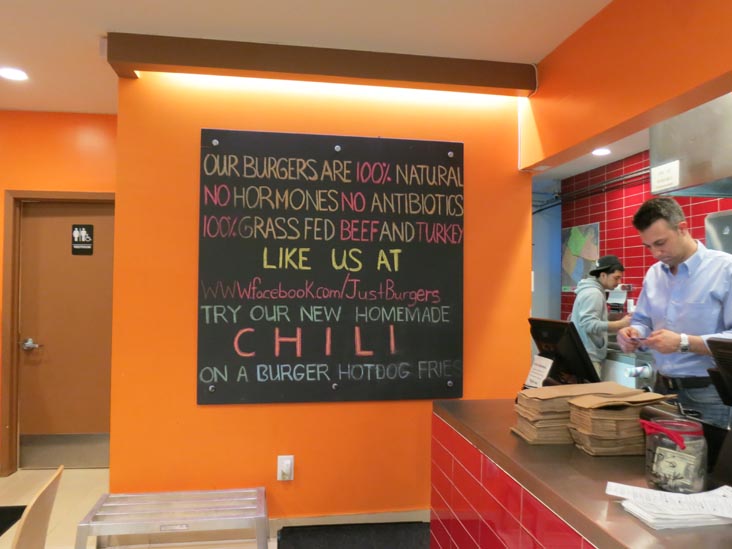 OUR BURGERS ARE 100% NATURAL
NO HORMONES NO ANTIBIOTICS
100% GRASS FED BEEF AND TURKEY
LIKE US AT
WWW.facebook.com/JustBurgers
TRY OUR NEW HOMEMADE
CHILI
ON A BURGER HOTDOG FRIES